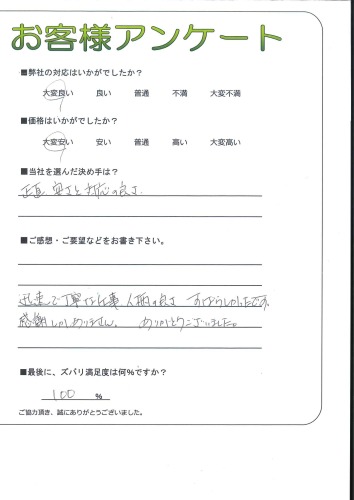 お客様アンケート
■弊社の対応はいかがでしたか？
大変良い 良い 普通 不満 大変不満
■価格はいかがでしたか？
大変安い 安い 普通 高い 大変高い
■当社を選んだ決め手は？
正直 安さと対応の良さ．
■ご感想・ご要望などをお書き下さい。
迅速で丁寧な仕事、人柄の良さ すばらしかったです。
感謝しかありません。 ありがとうございました。
■最後に、ズバリ満足度は何％ですか？
100 ％
ご協力頂き、誠にありがとうございました。